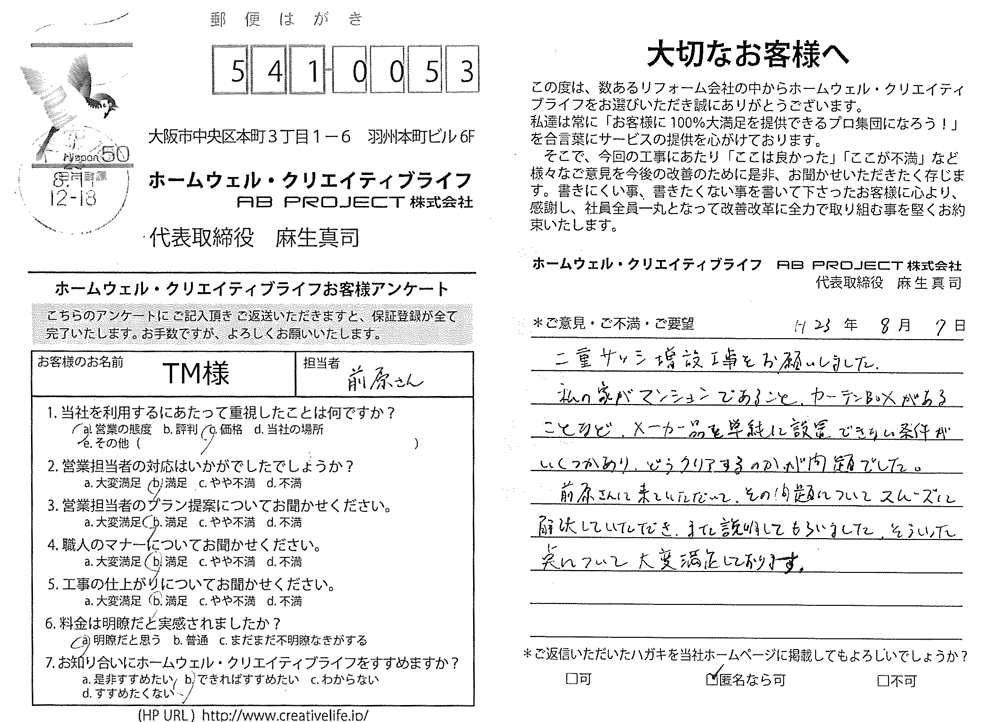 郵便はがき
541-0053
Nippon 50
日本郵便
12-18
大阪市中央区本町3丁目1－6　羽州本町ビル6F
ホームウェル・クリエイティブライフ
AB PROJECT 株式会社
代表取締役　麻生真司
ホームウェル・クリエイティブライフお客様アンケート
こちらのアンケートにご記入頂きご返送いただきますと、保証登録が全て
完了いたします。お手数ですが、よろしくお願いいたします。
お客様のお名前　TM様　担当者　前原さん
1. 当社を利用するにあたって重視したことは何ですか？
a. 営業の態度　b. 評判　c. 価格　d. 当社の場所
e. その他（　　　）
2. 営業担当者の対応はいかがでしたでしょうか？
a. 大変満足　b. 満足　c. やや不満　d. 不満
3. 営業担当者のプラン提案についてお聞かせください。
a. 大変満足　b. 満足　c. やや不満　d. 不満
4. 職人のマナーについてお聞かせください。
a. 大変満足　b. 満足　c. やや不満　d. 不満
5. 工事の仕上がりについてお聞かせください。
a. 大変満足　b. 満足　c. やや不満　d. 不満
6. 料金は明瞭だと実感されましたか？
a. 明瞭だと思う　b. 普通　c. まだまだ不明瞭なきがする
7. お知り合いにホームウェル・クリエイティブライフをすすめますか？
a. 是非すすめたい　b. できればすすめたい　c. わからない
d. すすめたくない
(HP URL) http://www.creativelife.jp/
大切なお客様へ
この度は、数あるリフォーム会社の中からホームウェル・クリエイティ
ブライフをお選びいただき誠にありがとうございます。
私達は常に「お客様に100%大満足を提供できるプロ集団になろう！」
を合言葉にサービスの提供を心がけております。
そこで、今回の工事にあたり「ここは良かった」「ここが不満」など
様々なご意見を今後の改善のために是非、お聞かせいただきたく存じま
す。書きにくい事、書きたくない事を書いて下さったお客様に心より、
感謝し、社員全員一丸となって改善改革に全力で取り組む事を堅くお約
束いたします。
ホームウェル・クリエイティブライフ　AB PROJECT 株式会社
代表取締役　麻生真司
＊ご意見・ご不満・ご要望　H23 年 8 月 7 日
二重サッシ増設工事をお願いしました。
私の家がマンションであること、カーテンBOXがある
ことなど、メーカー品を単純に設置できない条件が
いくつかあり、どうクリアするのかが問題でした。
前原さんに来ていただいて、その問題についてスムーズに
解決していただき、また説明してもらいました。そういった
点について大変満足しております。
＊ご返信いただいたハガキを当社ホームページに掲載してもよろしいでしょうか？
□可　☑匿名なら可　□不可